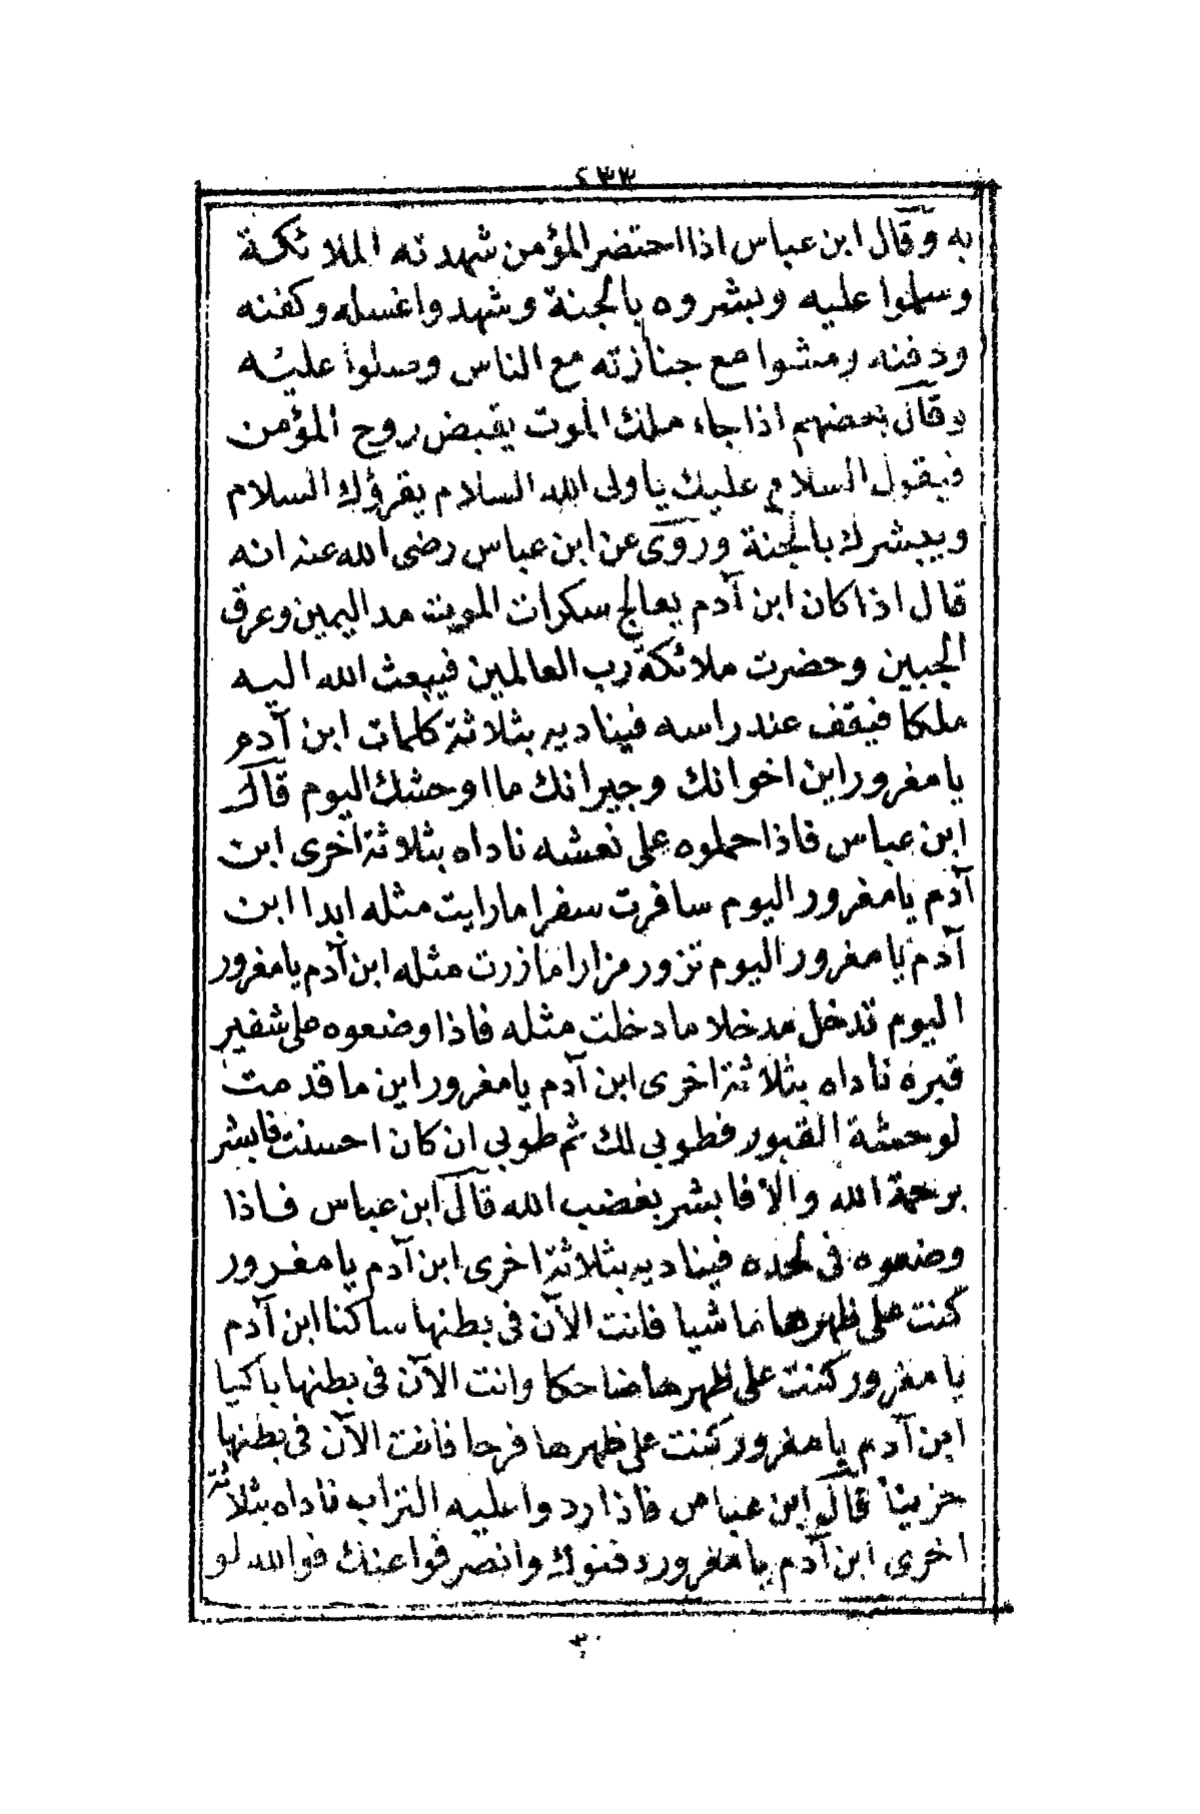 ٢٣٣
به وقال ابن عباس اذا احتضر المؤمن شهدته الملائكة
وسلموا عليه وبشروه بالجنة وشهدوا غسله وكفنه
ودفنه ومشوا مع جنازته مع الناس وصلوا عليه
وقال بعضهم اذا جاء ملك الموت يقبض روح المؤمن
فيقول السلام عليك يا ولى الله السلام يقرؤك السلام
ويبشرك بالجنة وروى عن ابن عباس رضى الله عنه انه
قال اذا كان ابن آدم يعالج سكرات الموت مد اليمين وعرق
الجبين وحضرت ملائكة رب العالمين فيبعث الله اليه
ملكا فيقف عند راسه فيناديه بثلاثة كلمات ابن آدم
يا مغرور اين اخوانك وجيرانك ما اوحشك اليوم قال
ابن عباس فاذا حملوه على نعشه ناداه بثلاثة اخرى ابن
آدم يا مغرور اليوم سافرت سفرا ما رايت مثله ابدا ابن
آدم يا مغرور اليوم تزور مزارا ما زرت مثله ابن آدم يا مغرور
اليوم تدخل مدخلا ما دخلت مثله فاذا وضعوه على شفير
قبره ناداه بثلاثة اخرى ابن آدم يا مغرور اين ما قدمت
لوحشة القبور فطوبى لك ثم طوبى ان كان احسنت فابشر
برحمة الله والا فابشر بغضب الله قال ابن عباس فاذا
وضعوه فى لحده فيناديه بثلاثة اخرى ابن آدم يا مغرور
كنت على ظهرها ماشيا فانت الآن فى بطنها ساكنا ابن آدم
يا مغرور كنت على ظهرها ضاحكا وانت الآن فى بطنها باكيا
ابن آدم يا مغرور كنت على ظهرها فرحا فانت الآن فى بطنها
حزينا قال ابن عباس فاذا ردوا عليه التراب ناداه بثلاثة
اخرى ابن آدم يا مغرور دفنوك وانصرفوا عنك فوالله لو